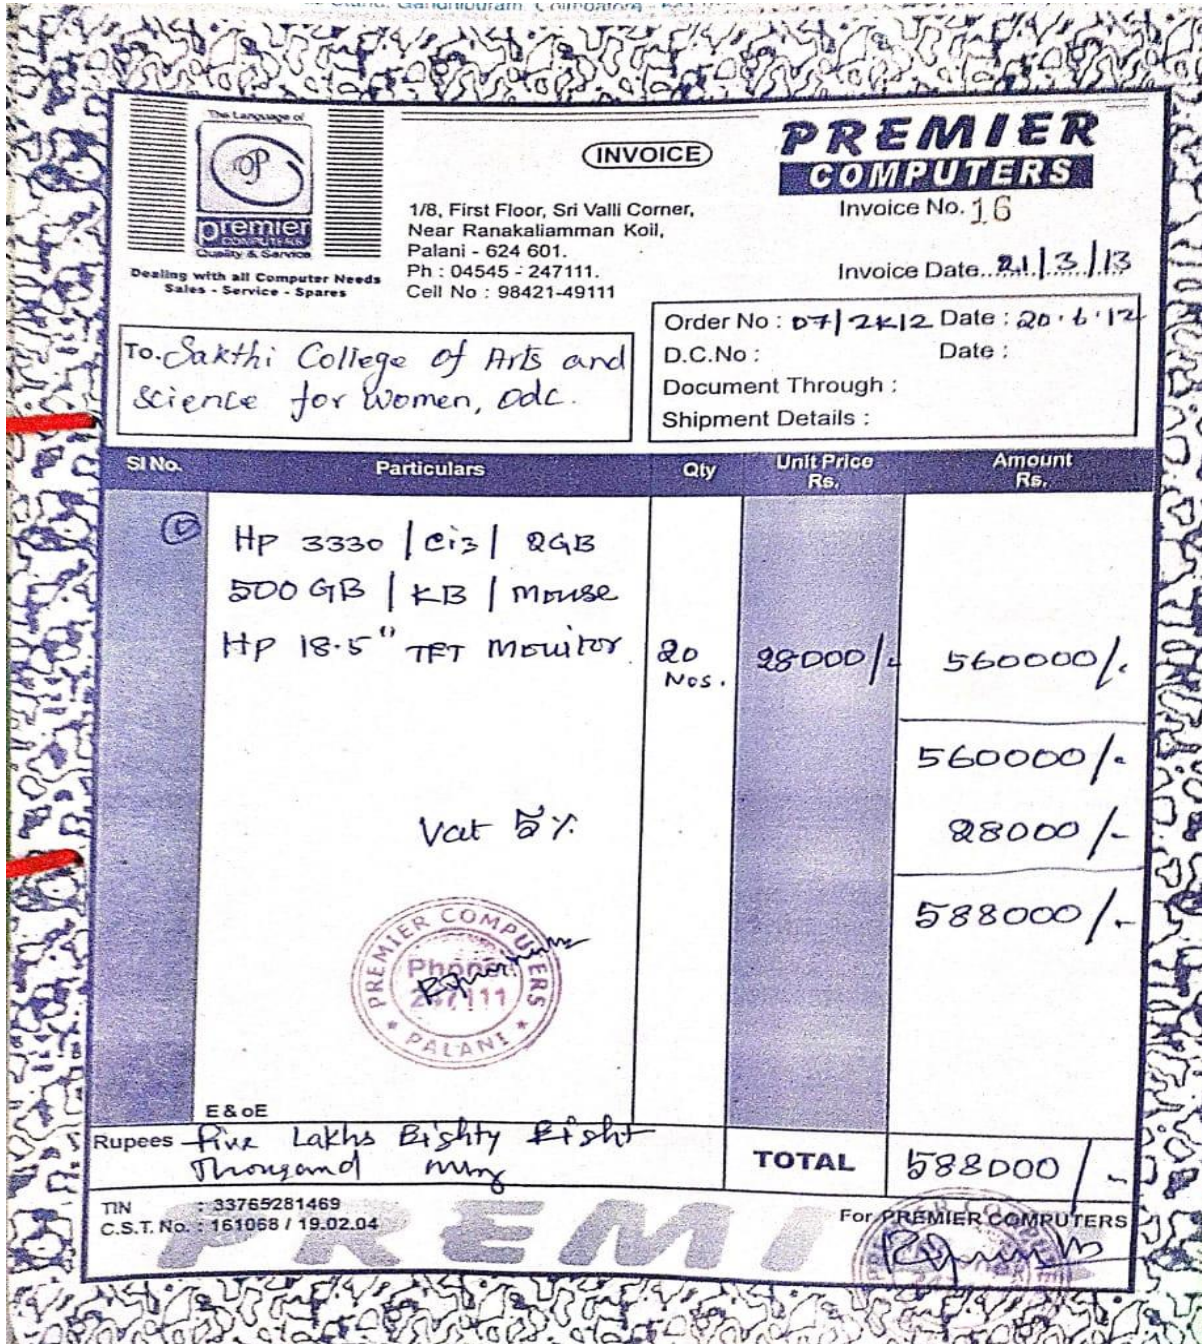 The Language of
OP
premier
COMPUTERS
Quality & Service
Dealing with all Computer Needs
Sales - Service - Spares
INVOICE
1/8, First Floor, Sri Valli Corner,
Near Ranakaliamman Koil,
Palani - 624 601.
Ph : 04545 - 247111.
Cell No : 98421-49111
PREMIER
COMPUTERS
Invoice No. 16
Invoice Date. 21/3/13
To. Sakthi College of Arts and
Science for Women, Odc.
Order No : 07/2K12 Date : 20.6.12
D.C.No : Date :
Document Through :
Shipment Details :
Sl No. Particulars Qty Unit Price Rs. Amount Rs.
Hp 3330 | Ci3 | 2GB
500 GB | KB | Mouse
Hp 18.5" TFT Monitor 20 Nos. 28000/- 560000/-
560000/-
Vat 5% 28000/-
588000/-
PREMIER COMPUTERS
Phone:
247111
PALANI
E & oE
Rupees Five Lakhs Eighty Eight
Thousand only
TOTAL 588000/-
TIN : 33765281469
C.S.T. No. : 161068 / 19.02.04
For PREMIER COMPUTERS
PREMI